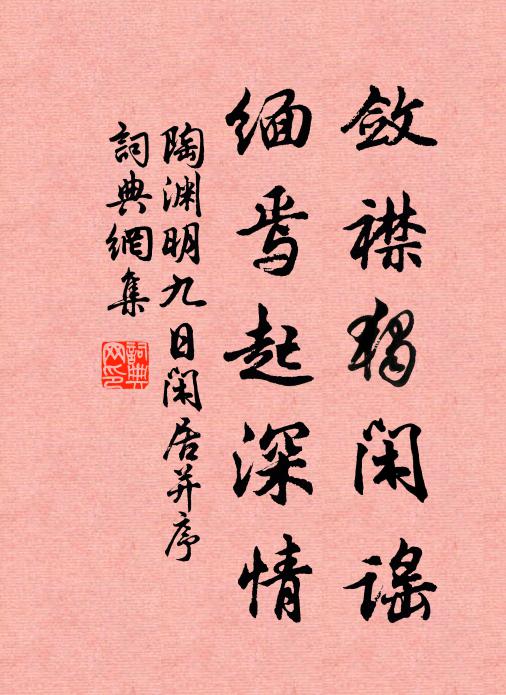 斂襟獨閑謠
緬焉起深情
陶渊明九日閑居并序
詞典網集
詞典网印